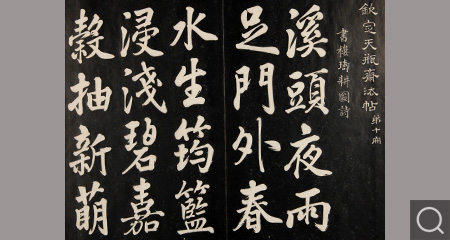 欽定天瓶齋法帖 第十冊
書樓璹耕圖詩
溪頭夜雨
足門外春
水生筠籃
浸淺碧嘉
穀抽新萌